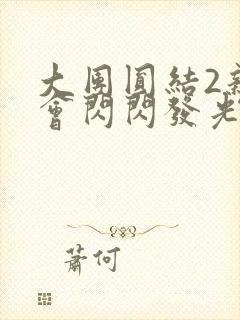 大團圓結2
會閃閃發光
蕭何